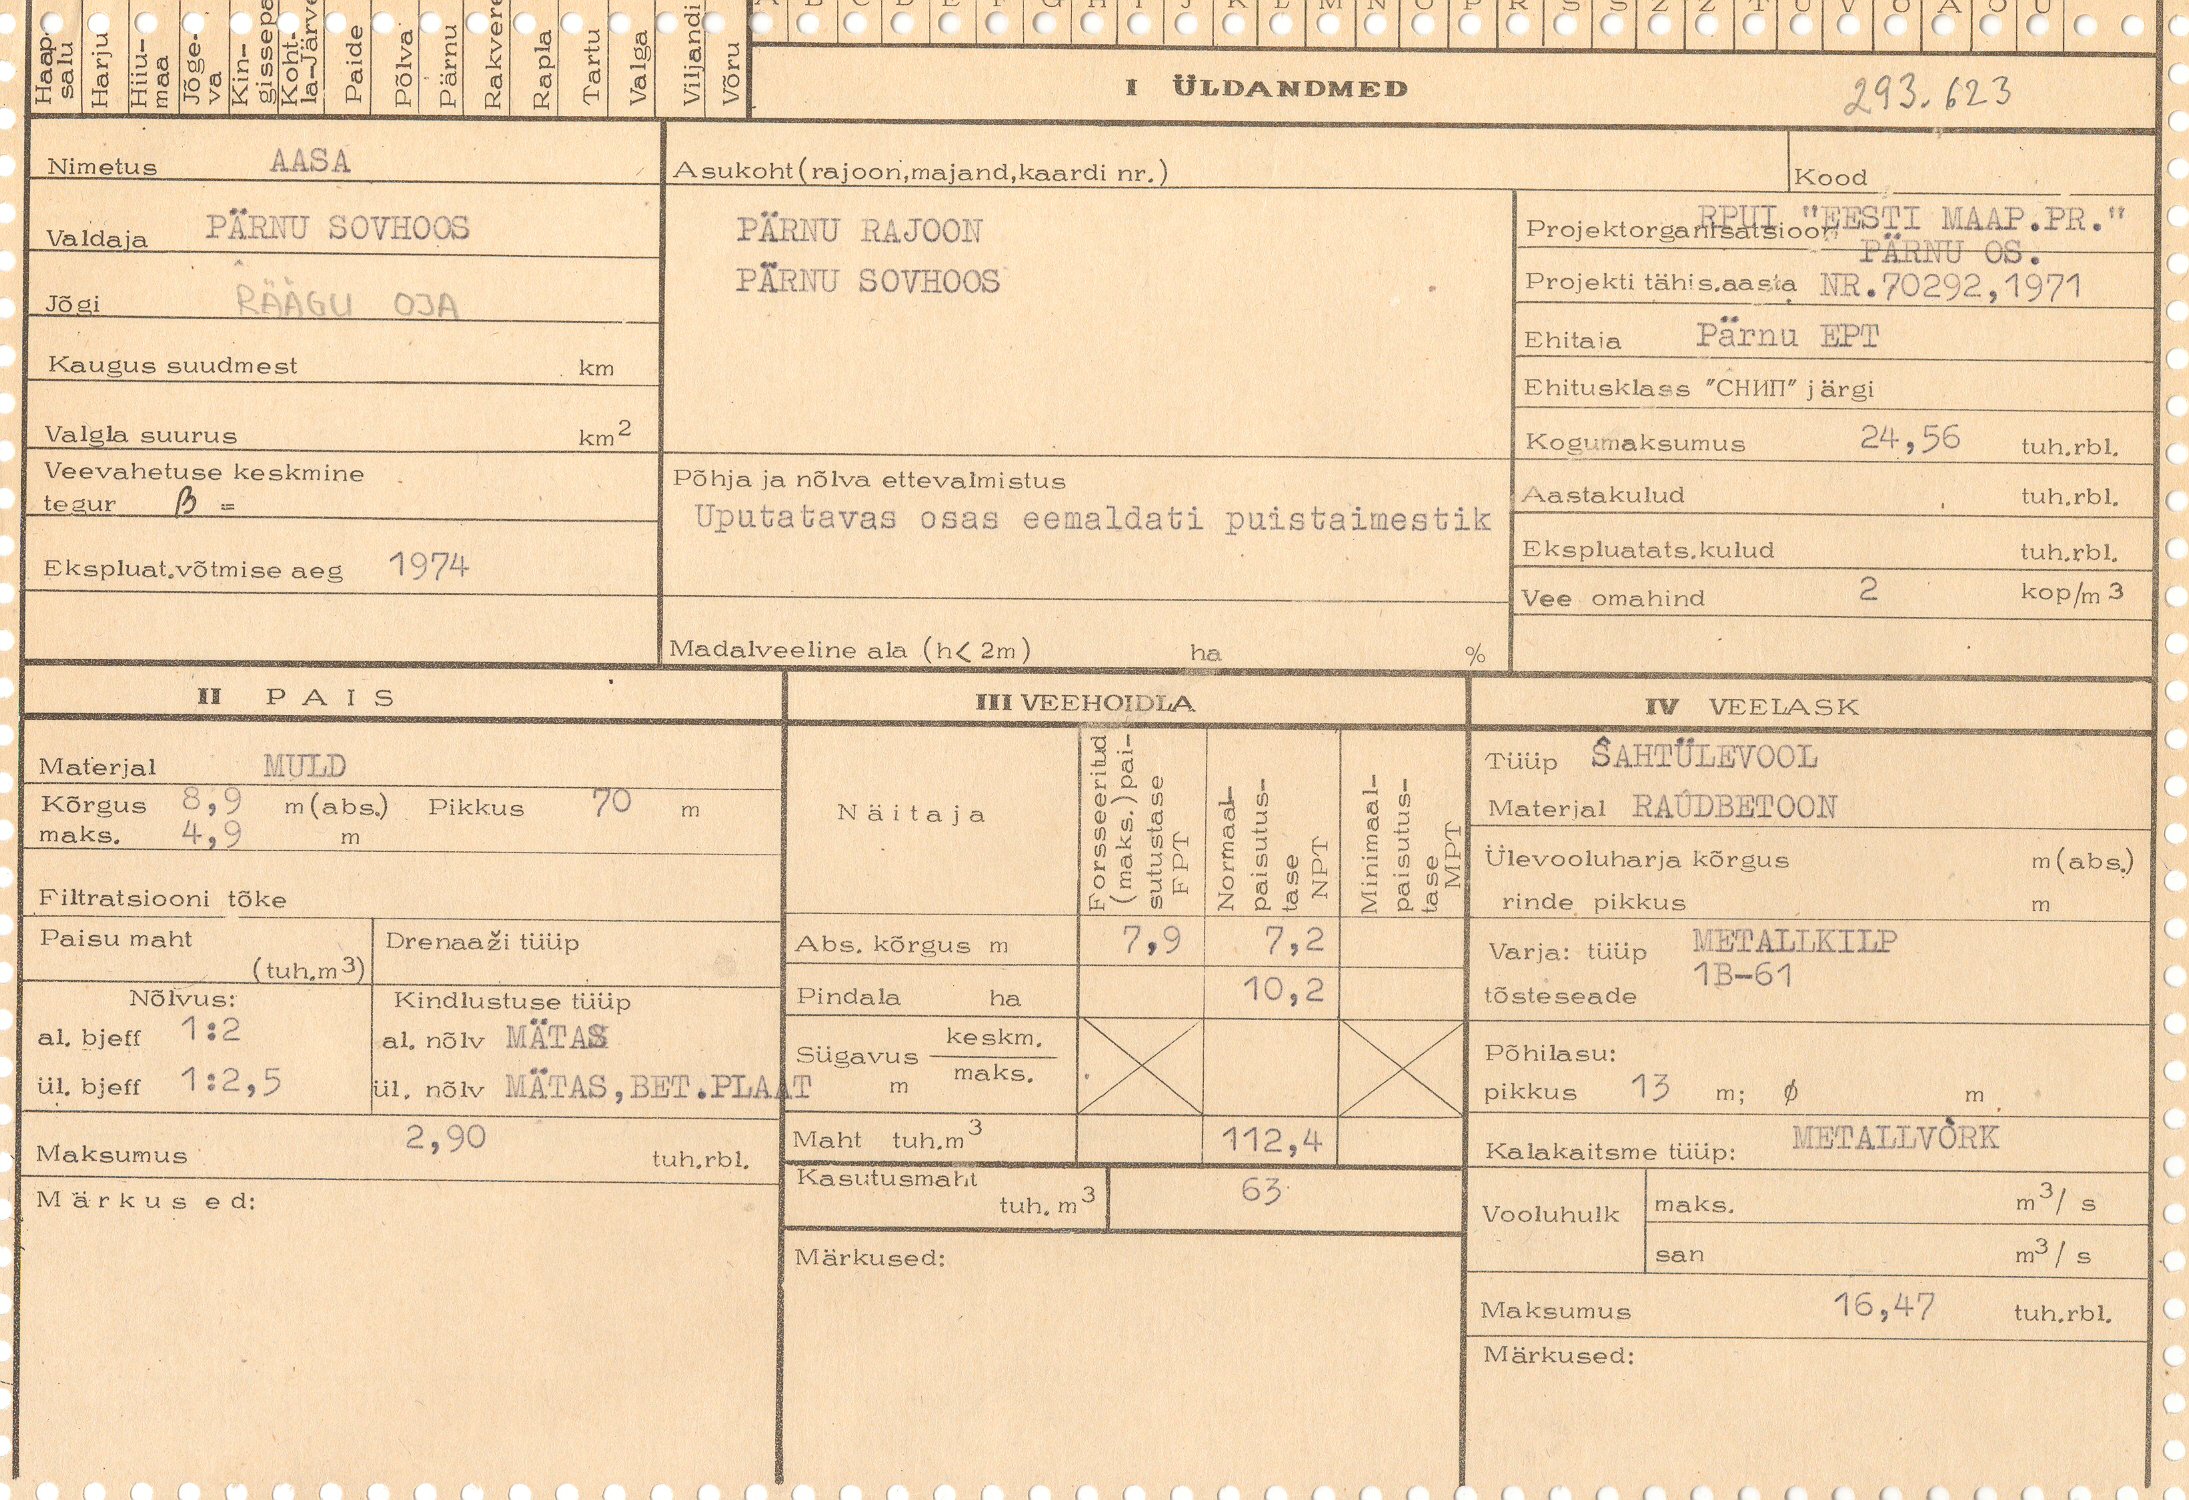 Haap-
salu
Harju
Hiiu-
maa
Jõge-
va
Kin-
gissepa
Koht-
la-Järve
Paide
Põlva
Pärnu
Rakvere
Rapla
Tartu
Valga
Viljandi
Võru
A B C D E F G H I J K L M N O P R S Š Z Ž T U V Õ Ä Ö Ü
I ÜLDANDMED
293.623
Nimetus AASA
Valdaja PÄRNU SOVHOOS
Jõgi RÄÄGU OJA
Kaugus suudmest km
Valgla suurus km2
Veevahetuse keskmine
tegur β =
Ekspluat.võtmise aeg 1974
Asukoht(rajoon,majand,kaardi nr.)
PÄRNU RAJOON
PÄRNU SOVHOOS
Põhja ja nõlva ettevalmistus
Uputatavas osas eemaldati puistaimestik
Madalveeline ala (h< 2m) ha %
Kood
Projektorganisatsioon RPUI "EESTI MAAP.PR."
PÄRNU OS.
Projekti tähis.aasta NR.70292,1971
Ehitaja Pärnu EPT
Ehitusklass "СНИП" järgi
Kogumaksumus 24,56 tuh.rbl.
Aastakulud tuh.rbl.
Ekspluatats.kulud tuh.rbl.
Vee omahind 2 kop/m3
II PAIS
Materjal MULD
Kõrgus 8,9 m(abs.) Pikkus 70 m
maks. 4,9 m
Filtratsiooni tõke
Paisu maht
(tuh.m3)
Drenaaži tüüp
Nõlvus:
al. bjeff 1:2
ül. bjeff 1:2,5
Kindlustuse tüüp
al. nõlv MÄTAS
ül. nõlv MÄTAS,BET.PLAAT
Maksumus 2,90 tuh.rbl.
Märkused:
III VEEHOIDLA
Näitaja
Forsseeritud
(maks.)pai-
sutustase
FPT
Normaal-
paisutus-
tase
NPT
Minimaal-
paisutus-
tase
MPT
Abs. kõrgus m 7,9 7,2
Pindala ha 10,2
Sügavus keskm.
m maks.
Maht tuh.m3 112,4
Kasutusmaht
tuh. m3 63
Märkused:
IV VEELASK
Tüüp ŠAHTÜLEVOOL
Materjal RAUDBETOON
Ülevooluharja kõrgus m(abs.)
rinde pikkus m
Varja: tüüp METALLKILP
1B-61
tõsteseade
Põhilasu:
pikkus 13 m; ø m
Kalakaitsme tüüp: METALLVÕRK
Vooluhulk
maks. m3/ s
san m3/ s
Maksumus 16,47 tuh.rbl.
Märkused: